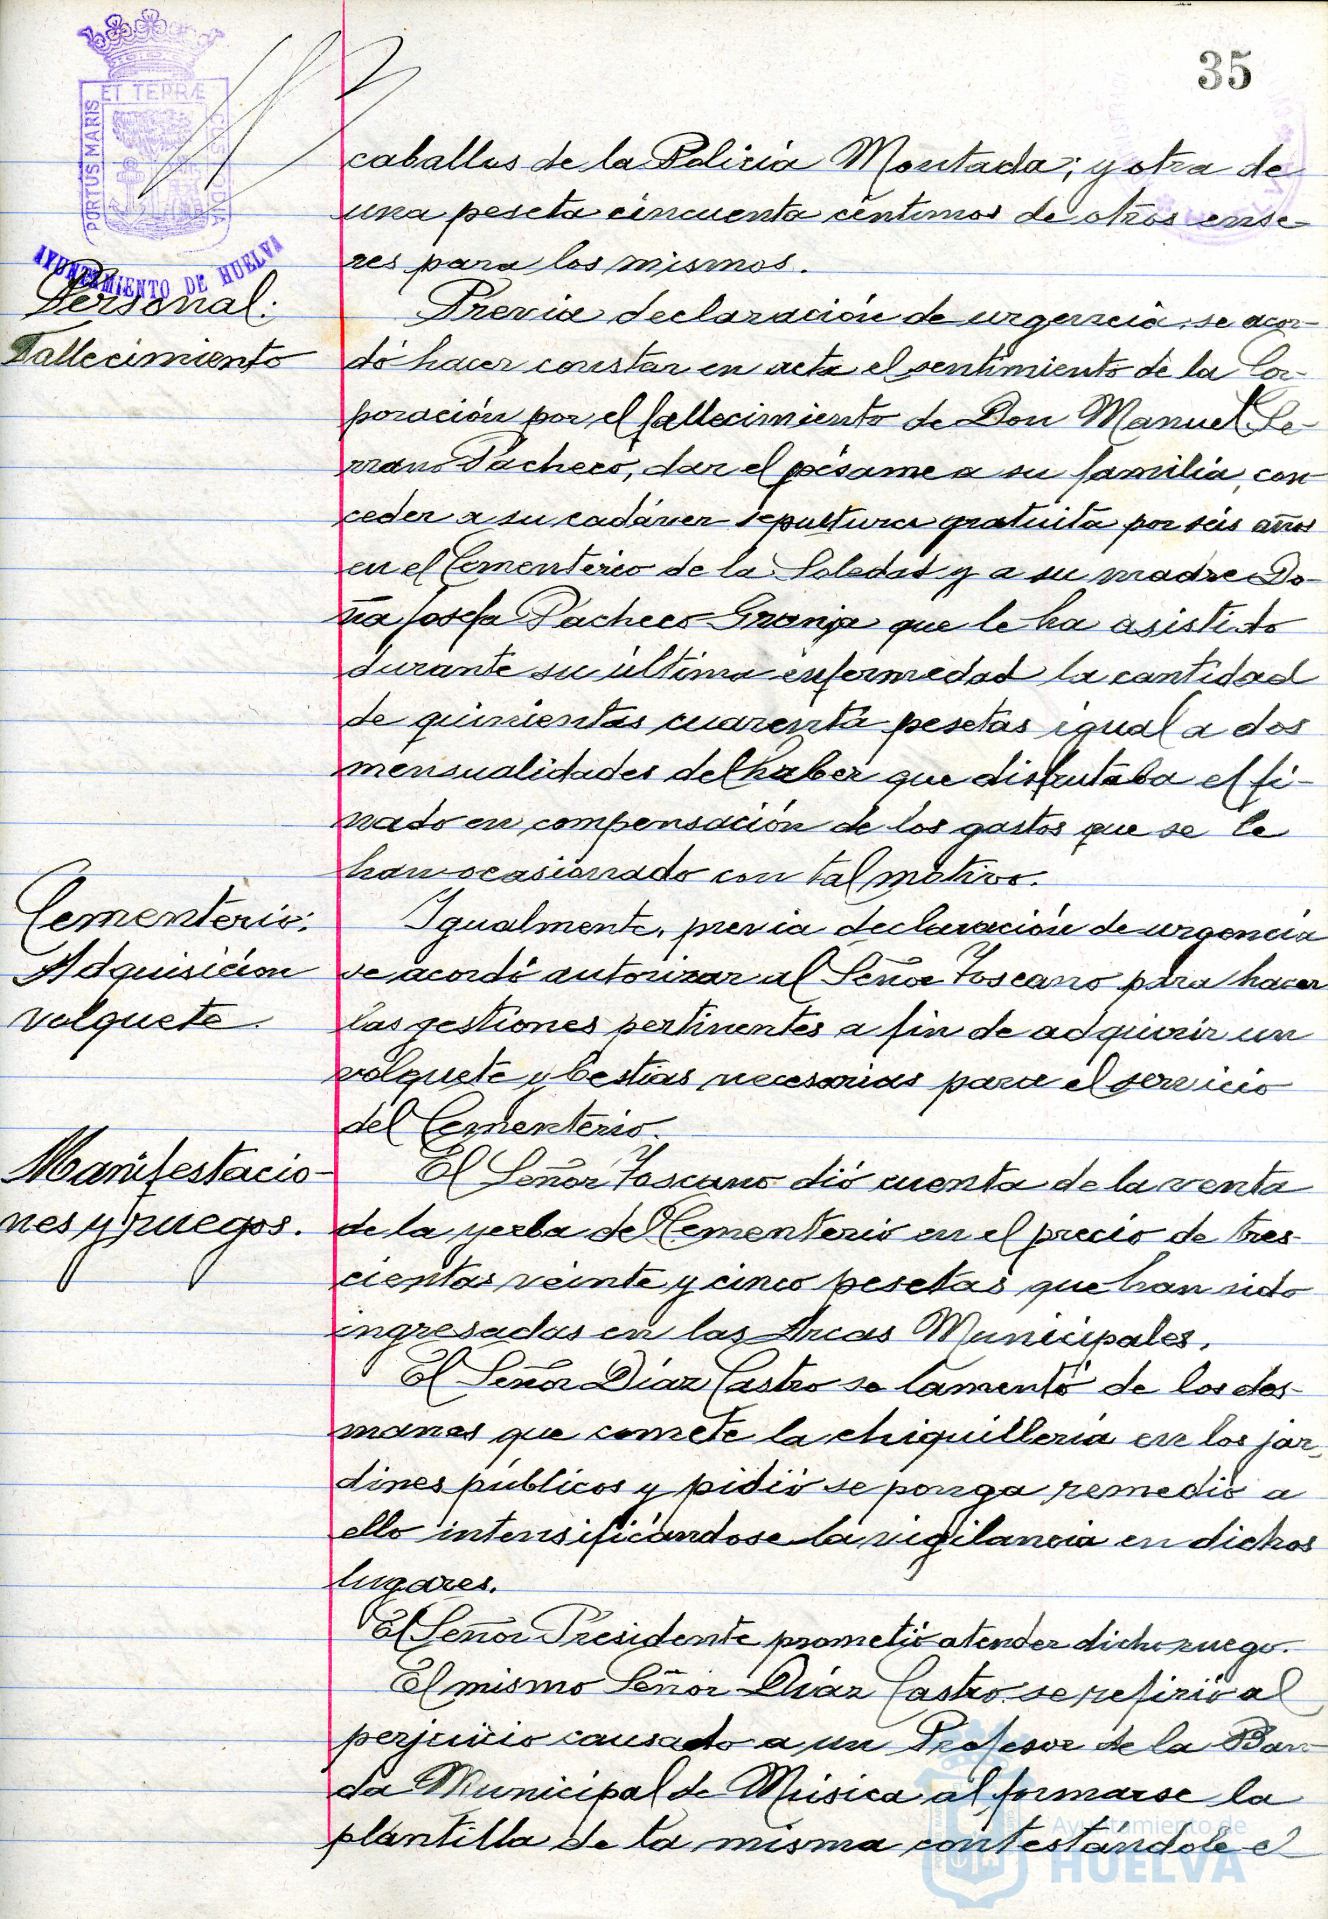 35
ET TERRÆ
PORTUS MARIS
CUSTODIA
AYUNTAMIENTO DE HUELVA
caballos de la Policia Montada; y otra de
una peseta cincuenta céntimos de otros ense-
res para los mismos.
Personal:
Fallecimiento
Previa declaración de urgencia, se acor-
dó hacer constar en acta el sentimiento de la Cor-
poración por el fallecimiento de Don Manuel Se-
rrano Pacheco, dar el pésame a su familia, con
ceder a su cadáver sepultura gratuita por seis años
en el Cementerio de la Soledad y a su madre Do-
ña Josefa Pacheco Granja que le ha asistido
durante su última enfermedad la cantidad
de quinientas cuarenta pesetas igual a dos
mensualidades del haber que disfrutaba el fi-
nado en compensación de los gastos que se le
han ocasionado con tal motivo.
Cementerio:
Adquisición
volquete.
Igualmente, previa declaración de urgencia
se acordó autorizar al Señor Toscano para hacer
las gestiones pertinentes a fin de adquirir un
volquete y bestias necesarias para el servicio
del Cementerio.
Manifestacio-
nes y ruegos.
El Señor Toscano dió cuenta de la venta
de la yerba del Cementerio en el precio de tres-
cientas veinte y cinco pesetas que han sido
ingresadas en las Arcas Municipales.
El Señor Díaz Castro se lamentó de los des-
manes que comete la chiquillería en los jar-
dines públicos y pidió se ponga remedio a
ello intensificándose la vigilancia en dichos
lugares.
El Señor Presidente prometió atender dicho ruego.
El mismo Señor Díaz Castro se refirió al
perjuicio causado a un Profesor de la Ban-
da Municipal de Música al formarse la
plantilla de la misma contestándole el
Ayuntamiento de
HUELVA